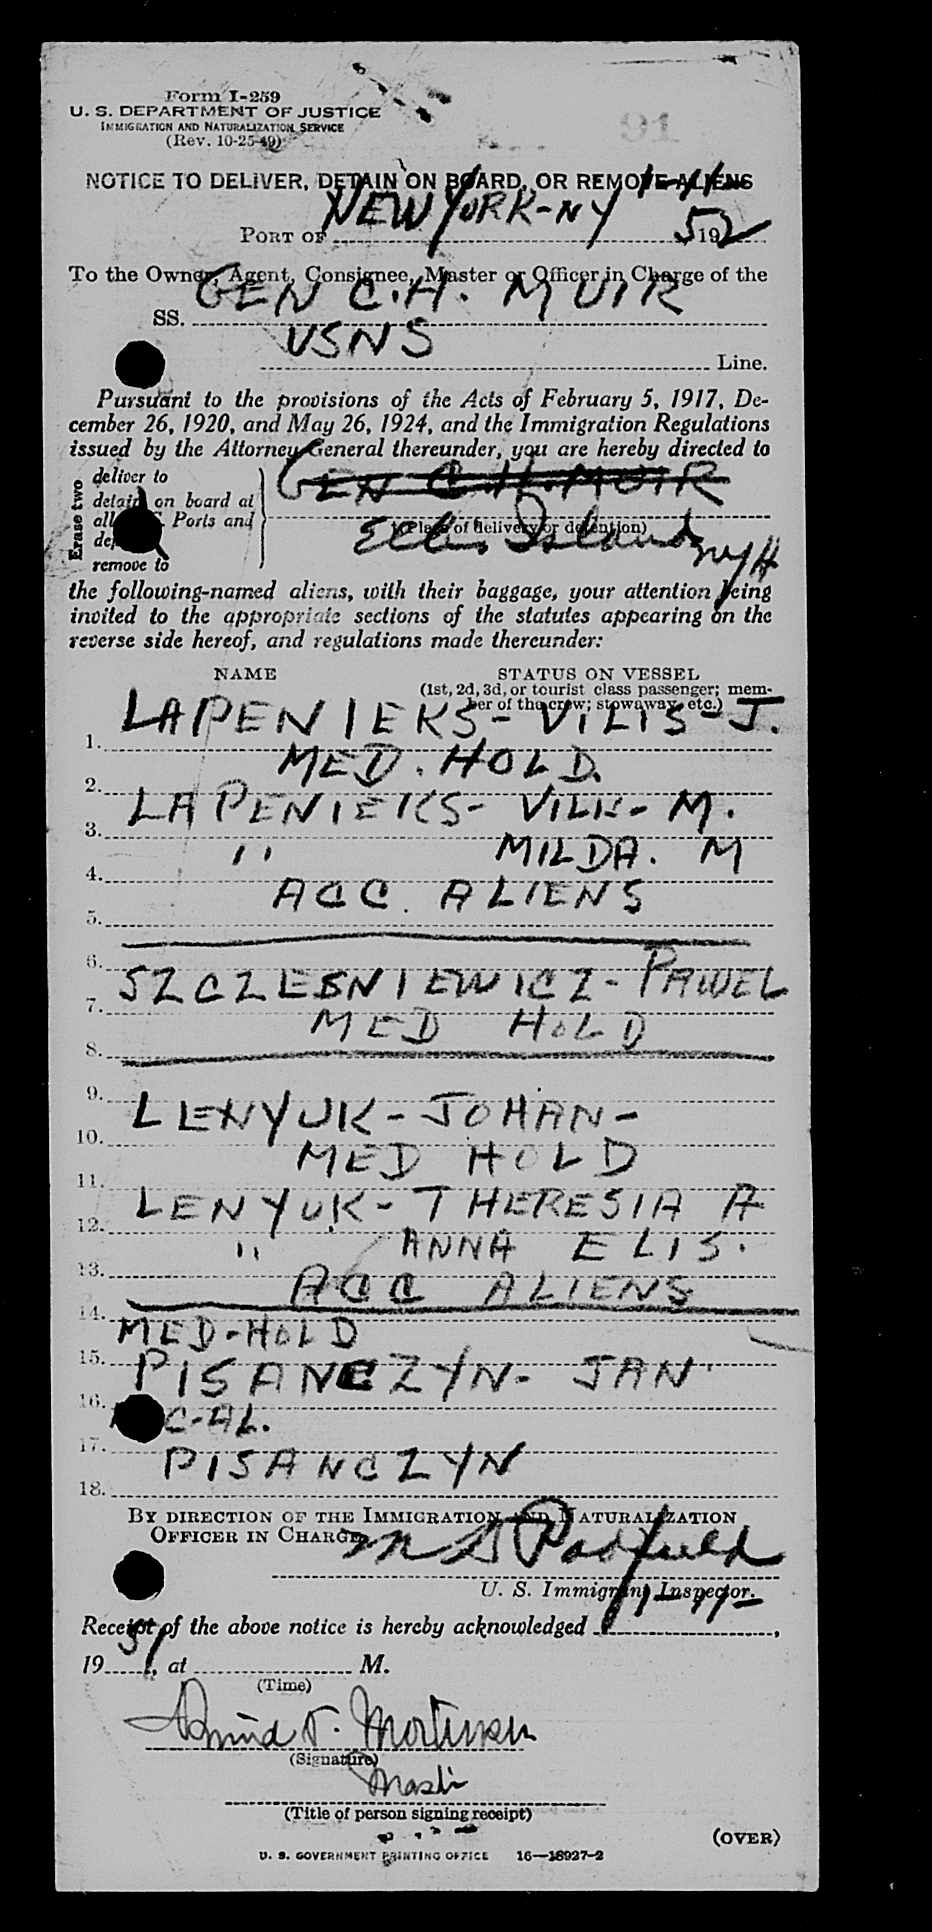 Form I-259
U. S. DEPARTMENT OF JUSTICE
IMMIGRATION AND NATURALIZATION SERVICE
(Rev. 10-25-49)
91
NOTICE TO DELIVER, DETAIN ON BOARD, OR REMOVE ALIENS
1-11-
PORT OF NEW YORK-NY 52 19
To the Owner, Agent, Consignee, Master or Officer in Charge of the
SS. GEN C.H. MUIR
USNS Line.
Pursuant to the provisions of the Acts of February 5, 1917, De-
cember 26, 1920, and May 26, 1924, and the Immigration Regulations
issued by the Attorney General thereunder, you are hereby directed to
Erase two
deliver to
detain on board at
all Ports and
remove to
GEN C.H. MUIR
(Place of delivery or detention)
Ellis Island NYH
the following-named aliens, with their baggage, your attention being
invited to the appropriate sections of the statutes appearing on the
reverse side hereof, and regulations made thereunder:
NAME STATUS ON VESSEL
(1st, 2d, 3d, or tourist class passenger; mem-
ber of the crew; stowaway, etc.)
1. LAPENIEKS - VILIS - J.
2. MED. HOLD.
3. LAPENIEKS - M.
4. " MILDA. M
5. ACC. ALIENS
6.
7. SZCZESNIEWICZ - PAWEL
8. MED HOLD
9.
10. LENYUK - JOHAN -
11. MED HOLD
12. LENYUK - THERESIA A
13. " ANNA ELIS.
14. ACC ALIENS
15. MED-HOLD
16. PISANCZYN - JAN
17. C-AL.
18. PISANCZYN
BY DIRECTION OF THE IMMIGRATION AND NATURALIZATION
OFFICER IN CHARGE
M Padfield
U. S. Immigrant Inspector.
Receipt of the above notice is hereby acknowledged
19 51, at M.
(Time)
Mortensen
(Signature)
(Title of person signing receipt)
(OVER)
U. S. GOVERNMENT PRINTING OFFICE 16—18927-2